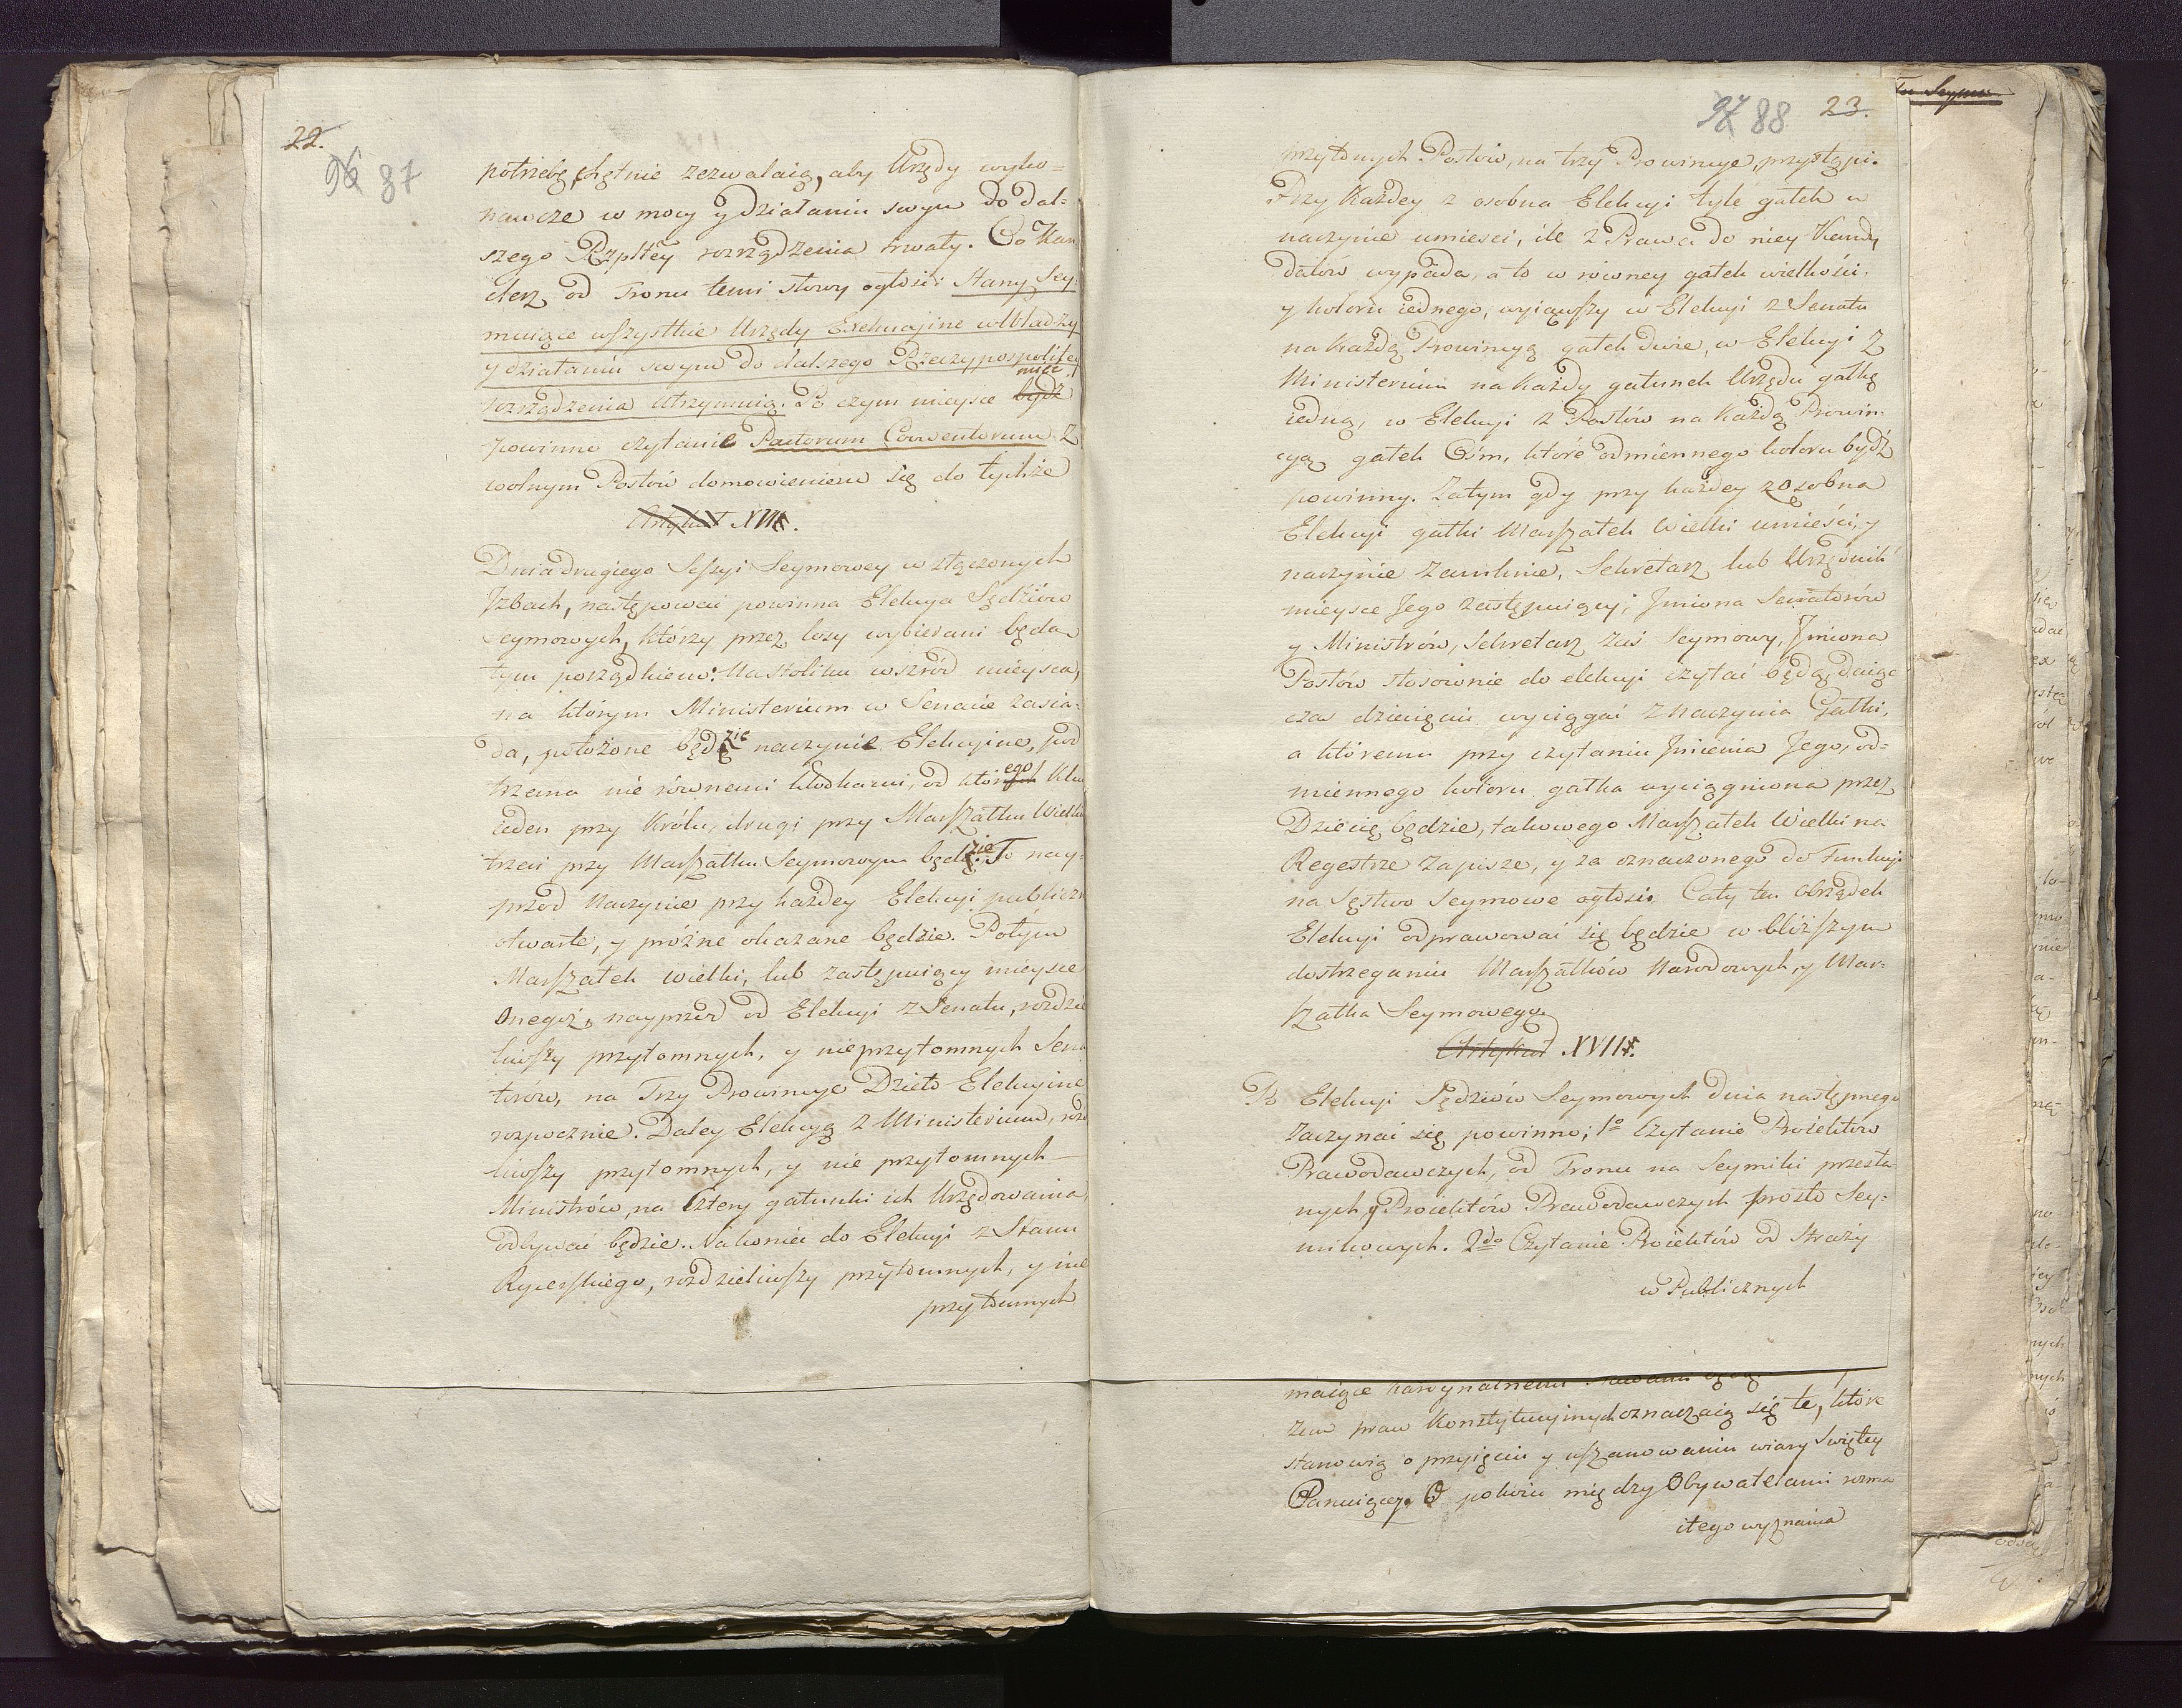 22.
96 87
potrzebę, chętnie zezwalaią, aby Urzędy wyko=
nawcze w mocy y działaniu swym do dal=
szego Rzpltey rozrządzenia trwały. Co Kan
clerz od Tronu temi słowy ogłosi: Stany Sey=
muiące wszystkie Urzędy Exekucyine w władzy
y działaniu swym do dalszego Rzeczypospolitey
rozrządzenia utrzymuią. Po czym mieysce bydź mieć
powinno czytanie Pactorum Conventorum z
wolnym Posłów domowieniem się do tychże
Artykuł XVII.
Dnia drugiego Sessyi Seymowey w złączonych
Izbach, następować powinna Elekcya Sędziów
Seymowych, którzy przez losy wybierani będą
tym porządkiem: Na stoliku wśrzód mieysca,
na którym Ministerium w Senacie zasia=
da, położone będzie naczynie Elekcyine, pod
trzema nie równemi kłodkami, od którego klu
ieden przy Królu, drugi przy Marszałku Wielki
trzeci przy Marszałku Seymowym będzie. To nay=
przod Naczynie przy każdey Elekcyi publiczn
otwarte, y próżne okazane będzie. Potym
Marszałek Wielki, lub zastępuiący mieysce
Onegoż, nayprzod od Elekcyi z Senatu, rozdzie
liwszy przytomnych, y nieprzytomnych Sena
torów, na Trzy Prowincye Dzieło Elekcyine
rozpocznie. Daley Elekcyą z Ministerium, roz
liwszy przytomnych, y nie przytomnych
Ministrów, na Cztery gatunki ich Urzędowania,
odbywać będzie. Nakoniec do Elekcyi z Stanu
Rycerskiego, rozdzieliwszy przytomnych, y nie
przytomnych
97 88 23.
przytomnych Posłów, na trzy Prowincye, przystąpi.
Przy Każdey z osobna Elekcyi tyle gałek w
naczynie umieści, ile z Prawa do niey Kandy
datów wypada, a to w równey gałek wielkości,
y koloru iednego, wyiąwszy w Elekcyi z Senatu
na Każdą Prowincyą gałek dwie, w Elekcyi z
Ministerium na Każdy gatunek Urzędu gałkę
iedną, w Elekcyi z Posłów na Każdą Prowin=
cyą gałek Ośm, które odmiennego koloru bydź
powinny. Zatym gdy przy każdey z osobna
Elekcyi gałki Marszałek Wielki umieści, y
naczynie zamknie, Sekretarz lub Urzędnik
mieysce Jego zastępuiący, Imiona Senatorów
y Ministrów, Sekretarz zaś Seymowy, Imiona
Posłów stosownie do elekcyi czytać będą, daiąc
czas dziecięciu wyciągać z naczynia Gałki,
a któremu przy czytaniu Imienia Jego, od=
miennego koloru gałka wyciągniona przez
Dziecię będzie, takowego Marszałek Wielki na
Regestrze zapisze, y za oznaczonego do Funkcyi
na Sęstwo Seymowe ogłosi. Cały ten obrządek
Elekcyi odprawować się będzie w bliższym
dostrzeganiu Marszałków Narodowych, y Mar=
szałka Seymowego.
Artykuł XVIII.
Po Elekcyi Sędziów Seymowych dnia następnego
Zaczynać się powinno; 1o Czytanie Proiektów
Prawodawczych, od Tronu na Seymiki przesła
nych, y Proiektów Prawodawczych prosto Sey=
mikowych. 2do Czytanie Proiektów od Straży
w Publicznych
maiące kardynalnemi
zem praw Konstytucyinych oznaczaią się te, które
stanowią o przyięciu y uszanowaniu wiary Swiętey
Panuiącey. O pokoiu między Obywatelami rozma
itego wyznania
Ten Seymu